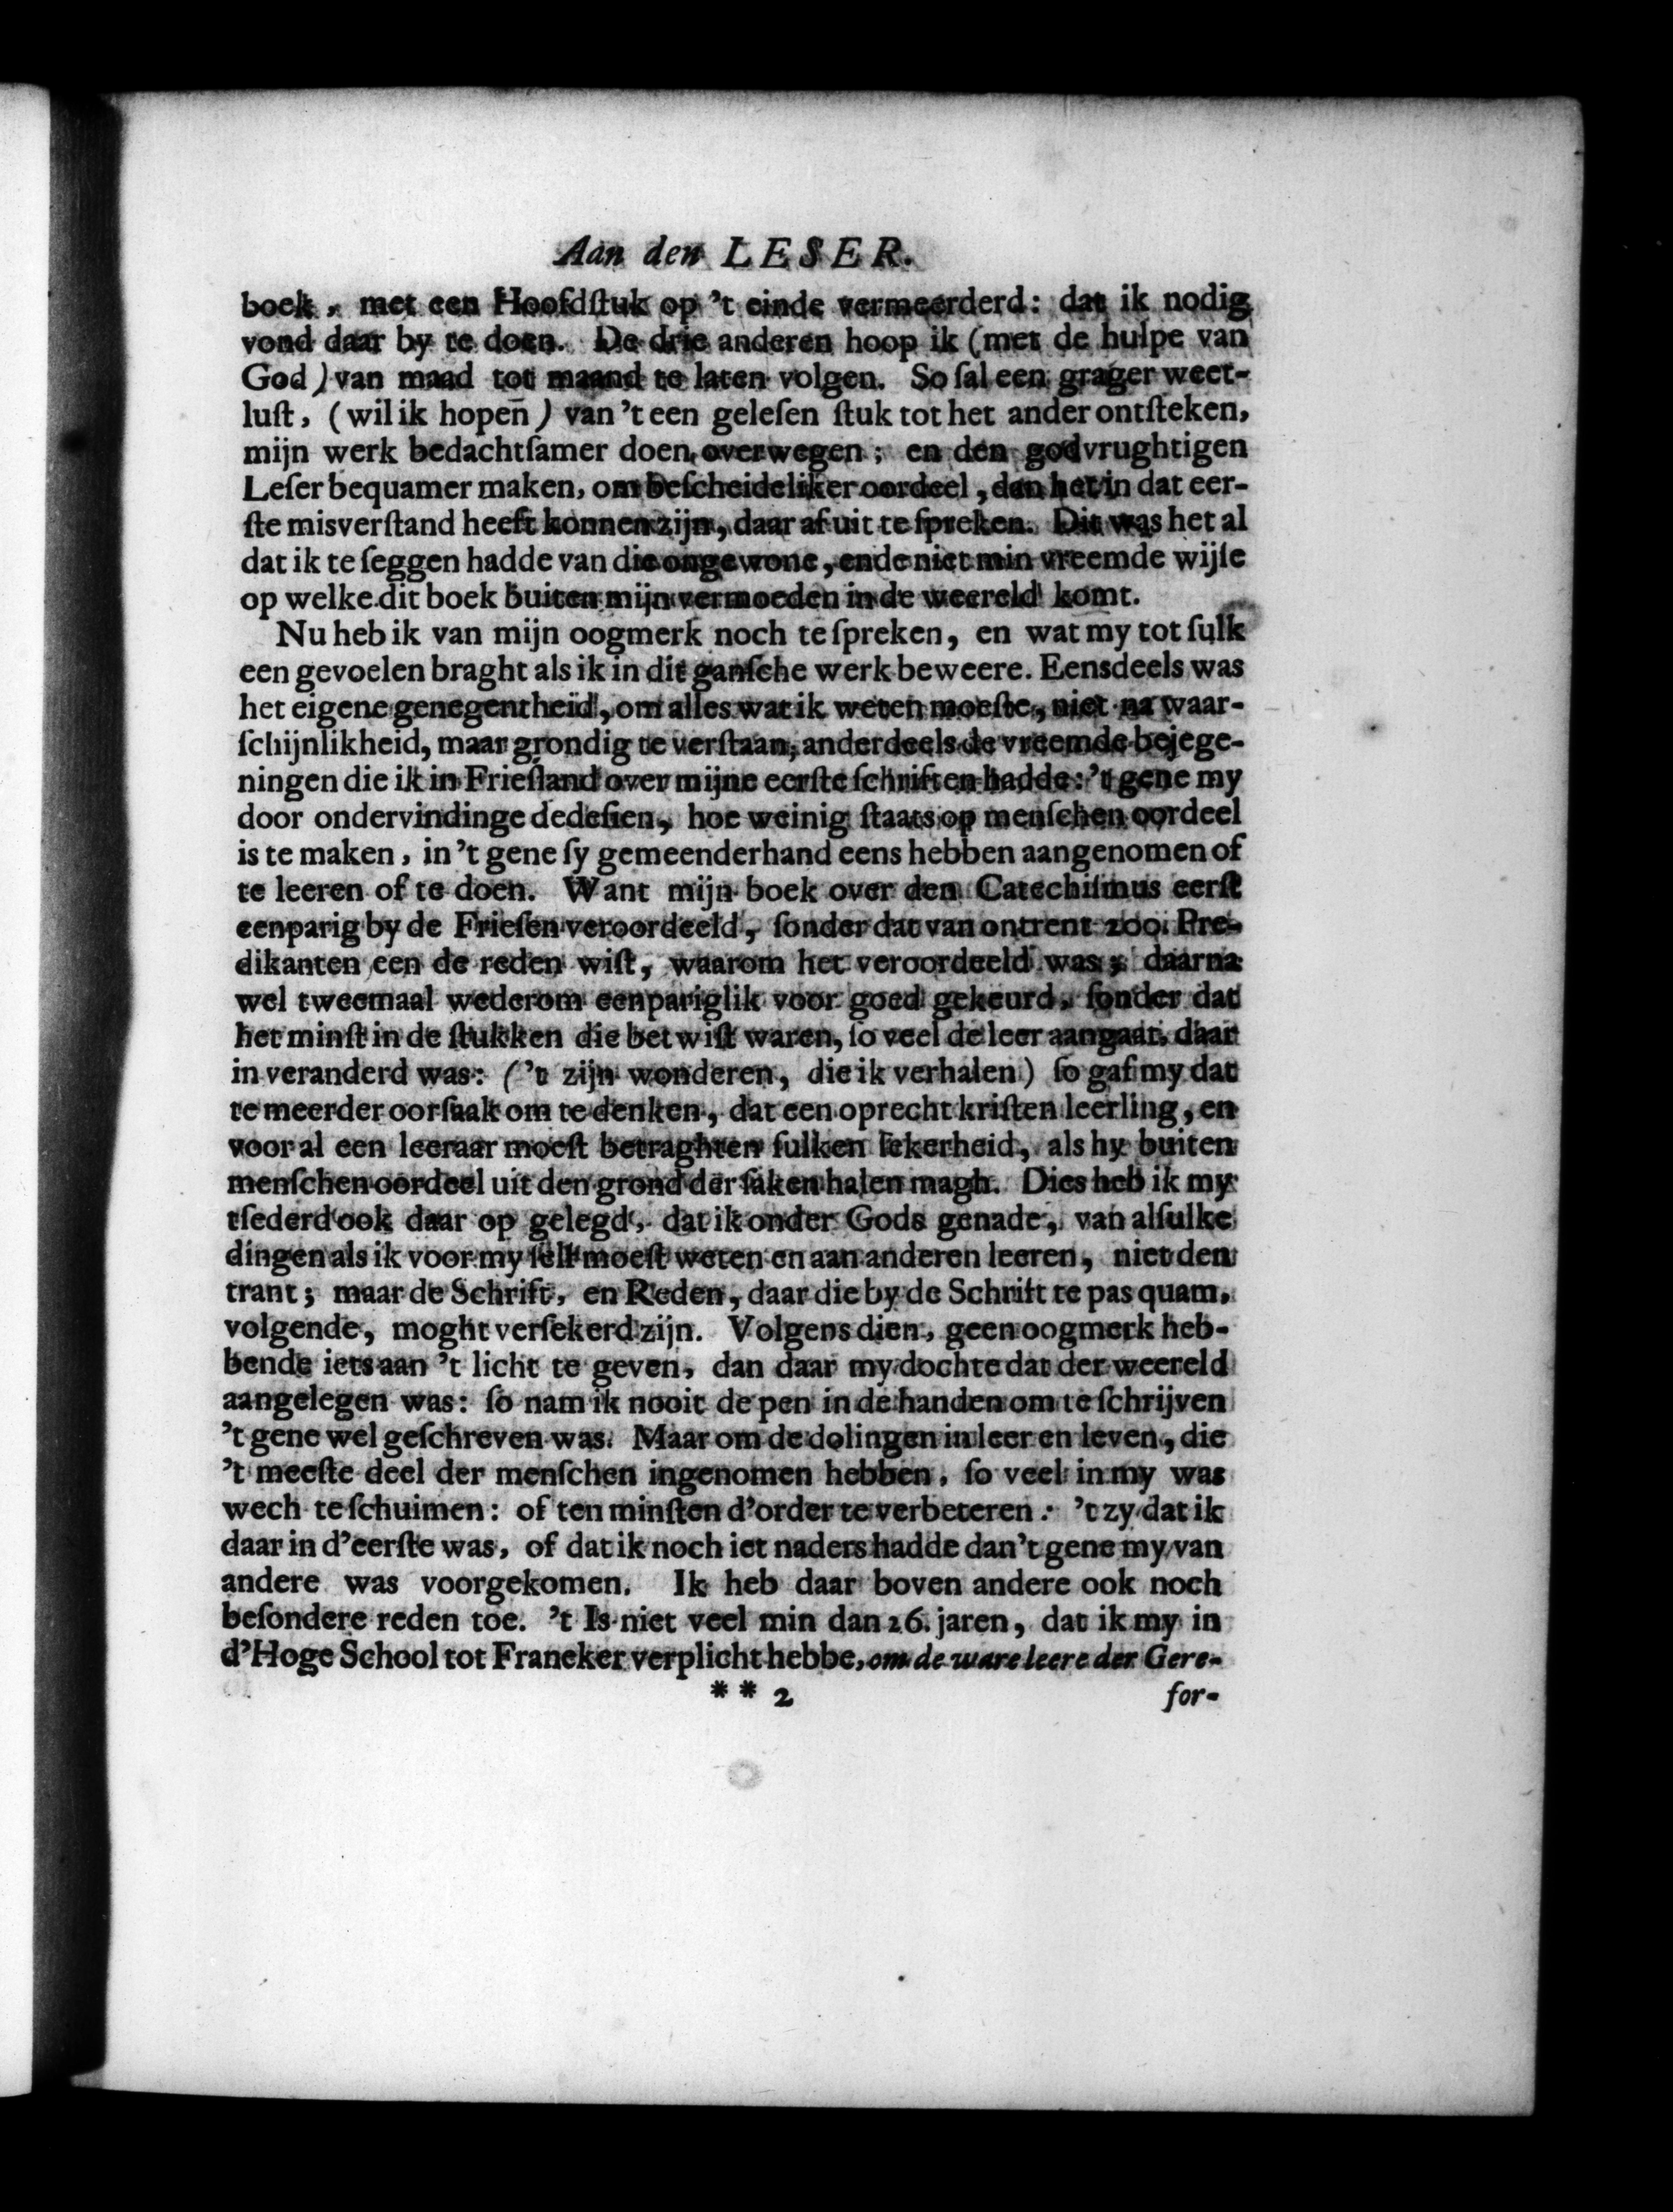 Aan den LESER.
boek, met een Hoofdſtuk op 't einde vermeerderd: dat ik nodig
vond daar by te doen. De drie anderen hoop ik (met de hulpe van
God) van maad tot maand te laten volgen. So ſal een grager weet-
luſt, (wil ik hopen̄) van 't een geleſen ſtuk tot het ander ontſteken,
mijn werk bedachtſamer doen overwegen; en den godvrughtigen
Leſer bequamer maken, om beſcheideliker oordeel, dan het in dat eer-
ſte misverſtand heeft konnen zijn, daar af uit te ſpreken. Dit was het al
dat ik te ſeggen hadde van die ongewone, ende niet min vreemde wijſe
op welke dit boek buiten mijn vermoeden in de weereld komt.
Nu heb ik van mijn oogmerk noch te ſpreken, en wat my tot ſulk
een gevoelen braght als ik in dit ganſche werk beweere. Eensdeels was
het eigene genegentheid, om alles wat ik weten moeſte, niet na waar-
ſchijnlikheid, maar grondig te verſtaan, anderdeels de vreemde bejege-
ningen die ik in Frieſland over mijne eerſte ſchriften hadde: 't gene my
door ondervindinge dede ſien, hoe weinig ſtaats op menſchen oordeel
is te maken, in 't gene ſy gemeenderhand eens hebben aangenomen of
te leeren of te doen. Want mijn boek over den Catechiſmus eerſt
eenparig by de Frieſen veroordeeld, ſonder dat van ontrent 200. Pre-
dikanten een de reden wiſt, waarom het veroordeeld was; daarna
wel tweemaal wederom eenpariglik voor goed gekeurd, ſonder dat
het minſt in de ſtukken die betwiſt waren, ſo veel de leer aangaat, daar
in veranderd was: ('t zijn wonderen, die ik verhalen) ſo gaf my dat
te meerder oorſaak om te denken, dat een oprecht kriſten leerling, en
voor al een leeraar moeſt betraghten ſulken ſekerheid, als hy buiten
menſchen oordeel uit den grond der ſaken halen magh. Dies heb ik my
tſederd ook daar op gelegd, dat ik onder Gods genade, van alſulke
dingen als ik voor my ſelf moeſt weten en aan anderen leeren, niet den
trant; maar de Schrift, en Reden, daar die by de Schrift te pas quam,
volgende, moght verſekerd zijn. Volgens dien, geen oogmerk heb-
bende iets aan 't licht te geven, dan daar my dochte dat der weereld
aangelegen was: ſo nam ik nooit de pen in de handen om te ſchrijven
't gene wel geſchreven was. Maar om de dolingen in leer en leven, die
't meeſte deel der menſchen ingenomen hebben, ſo veel in my was
wech te ſchuimen: of ten minſten d'order te verbeteren: 't zy dat ik
daar in d'eerſte was, of dat ik noch iet naders hadde dan 't gene my van
andere was voorgekomen. Ik heb daar boven andere ook noch
beſondere reden toe. 't Is niet veel min dan 26. jaren, dat ik my in
d'Hoge School tot Franeker verplicht hebbe, om de ware leere der Gere-
** 2 for-